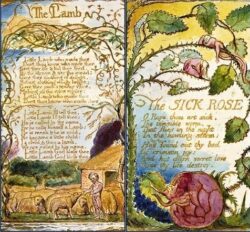 The Lamb
Little Lamb who made thee
Dost thou know who made thee
Gave thee life & bid thee feed.
By the stream & o'er the mead;
Gave thee such a tender voice,
Little Lamb who made thee
Dost thou know who made thee
Little Lamb I'll tell thee,
Little Lamb I'll tell thee,
He is called by thy name,
He is meek & he is mild,
He became a little child:
I a child & thou a lamb,
We are called by his name,
Little Lamb God bless thee,
Little Lamb God bless thee.
The SICK ROSE
O Rose thou art sick.
The invisible worm,
That flies in the night
In the howling storm:
Has found out thy bed
Of crimson joy:
And his dark secret love
Does thy life destroy.